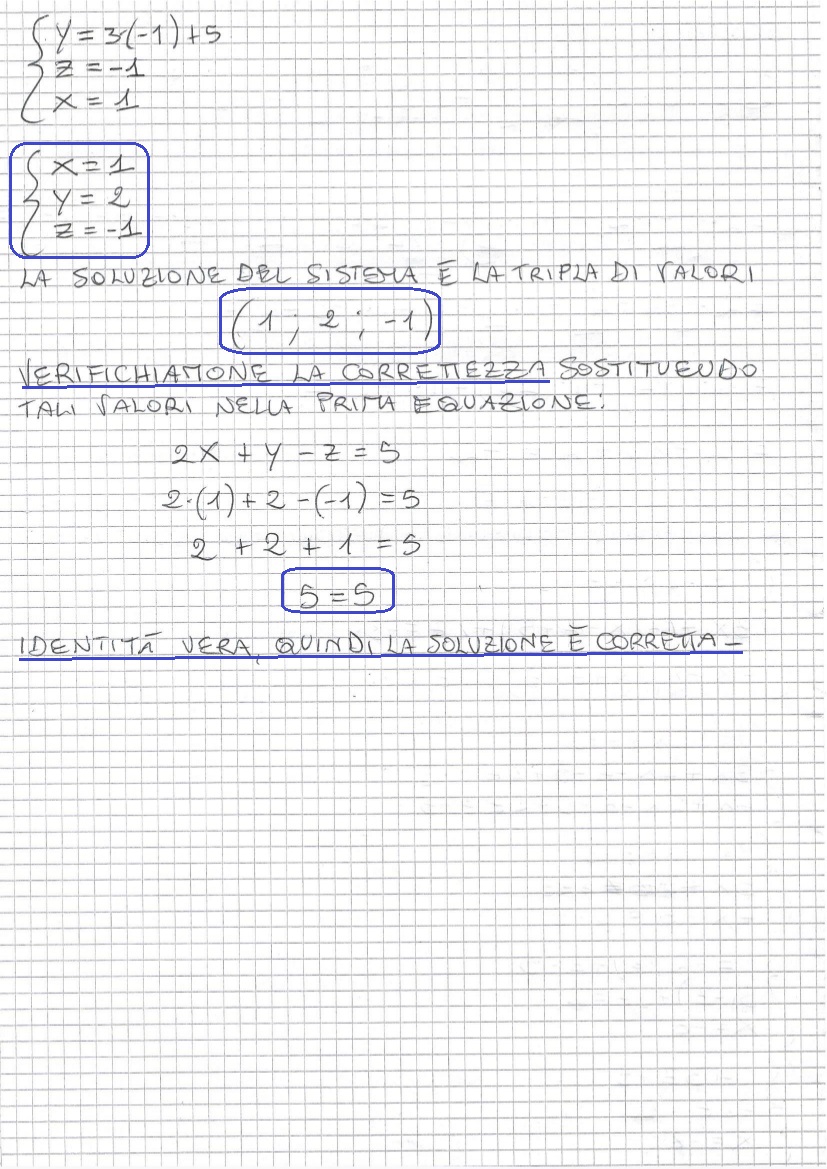 y = 3·(-1) + 5
z = -1
x = 1
x = 1
y = 2
z = -1
LA SOLUZIONE DEL SISTEMA È LA TRIPLA DI VALORI
(1 ; 2 ; -1)
VERIFICHIAMONE LA CORRETTEZZA SOSTITUENDO
TALI VALORI NELLA PRIMA EQUAZIONE:
2x + y - z = 5
2·(1) + 2 - (-1) = 5
2 + 2 + 1 = 5
5 = 5
IDENTITÀ VERA, QUINDI LA SOLUZIONE È CORRETTA-